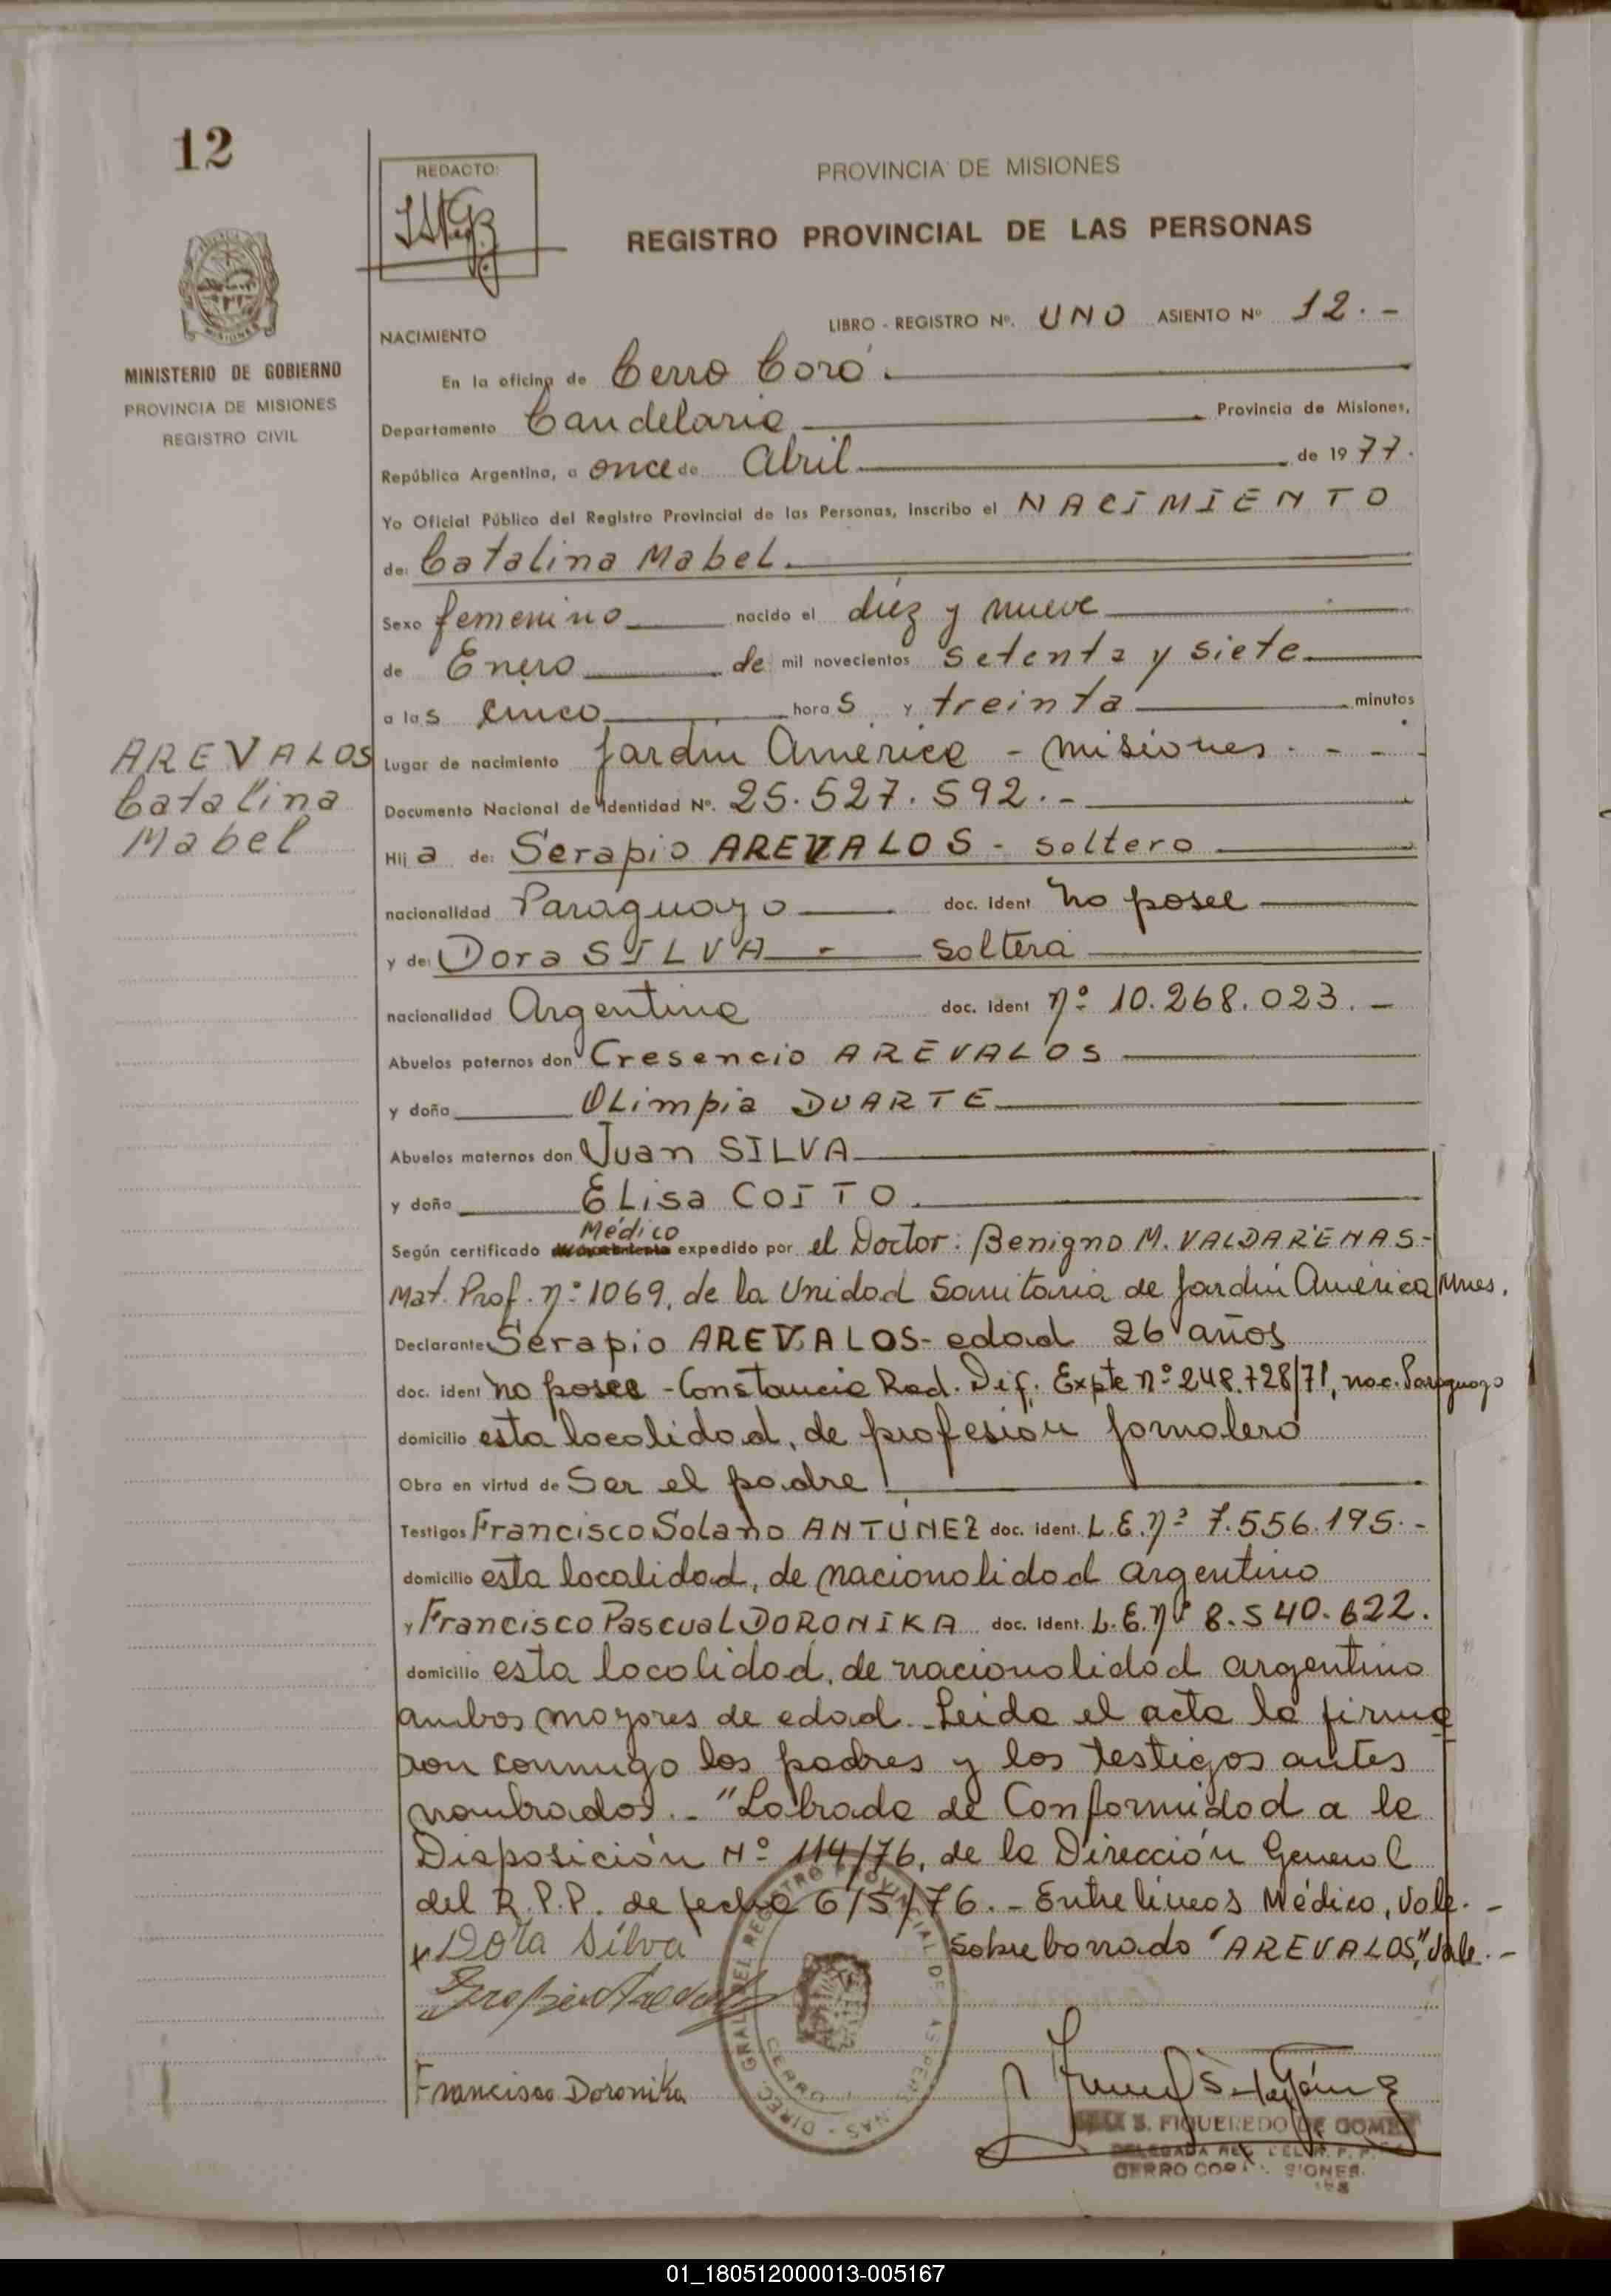 12
REDACTO:
PROVINCIA DE MISIONES
REGISTRO PROVINCIAL DE LAS PERSONAS
MINISTERIO DE GOBIERNO
PROVINCIA DE MISIONES
REGISTRO CIVIL
LIBRO - REGISTRO Nº. UNO ASIENTO Nº 12.-
NACIMIENTO
En la oficina de Cerro Corá.
Departamento Candelaria Provincia de Misiones,
República Argentina, a once de Abril de 1977.
Yo Oficial Público del Registro Provincial de las Personas, inscribo el NACIMIENTO
de: Catalina Mabel.
Sexo femenino nacido el diez y nueve
de Enero de mil novecientos setenta y siete
a las cinco horas y treinta minutos
Lugar de nacimiento Jardín América - Misiones. - - -
AREVALOS
Catalina
Mabel
Documento Nacional de Identidad Nº. 25.527.592.-
Hija de: Serapio AREVALOS - soltero
nacionalidad Paraguayo doc. ident no posee
y de: Dora SILVA - soltera
nacionalidad Argentina doc. ident nº 10.268.023.-
Abuelos paternos don Cresencio AREVALOS
y doña Olimpia DUARTE
Abuelos maternos don Juan SILVA
y doña Elisa COITO
Médico
Según certificado expedido por el Doctor: Benigno M. VALDARENAS-
Mat. Prof. nº 1069, de la Unidad Sanitaria de Jardín América Mnes.
Declarante Serapio AREVALOS- edad 26 años
doc. ident no posee - Constancia Rad. Dif. Expte nº 248.728/71, nac. Paraguayo
domicilio esta localidad, de profesión jornalero
Obra en virtud de Ser el padre
Testigos Francisco Solano ANTÚNEZ doc. ident. L.E. nº 7.556.195.-
domicilio esta localidad, de nacionalidad argentino
y Francisco Pascual DORONIKA doc. ident. L.E. nº 8.540.622.
domicilio esta localidad, de nacionalidad argentino
ambos mayores de edad.- Leida el acta la firma
ron conmigo los padres y los testigos antes
nombrados.- "Labrada de Conformidad a la
Disposición Nº 114/76, de la Dirección General
del R.P.P. de fecha 6/5/76.- Entre líneas Médico, Vale.-
x Dora Silva Sobreborrado "AREVALOS," Vale.-
Francisco Doronika
S. FIGUEREDO DE GOMEZ
DELEGADA
CERRO CORA
01_180512000013-005167